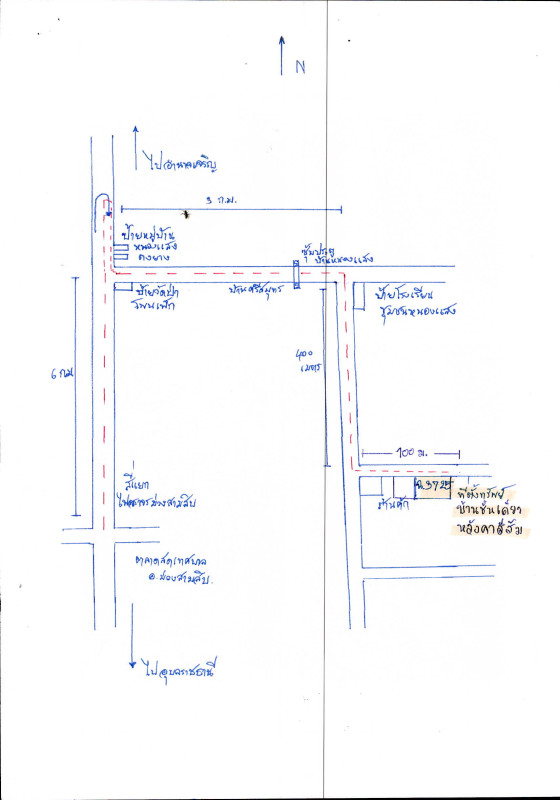 N
ไปอำนาจเจริญ
3 ก.ม.
ป้ายหมู่บ้าน
หนองแสง
ดงยาง
ซุ้มประตู
บ้านหนองแสง
ป้ายวัดป่า
บ้านศรีสมุทร
ป้ายโรงเรียน
ชุมชนหนองแสง
6 กม
400
เมตร
100 ม.
สี่แยก
ไฟจราจรม่วงสามสิบ
น.372
ที่ตั้งทรัพย์
บ้านชั้นเดียว
หลังคาสีส้ม
ตลาดสดเทศบาล
อ.ม่วงสามสิบ
ไปอุบลราชธานี